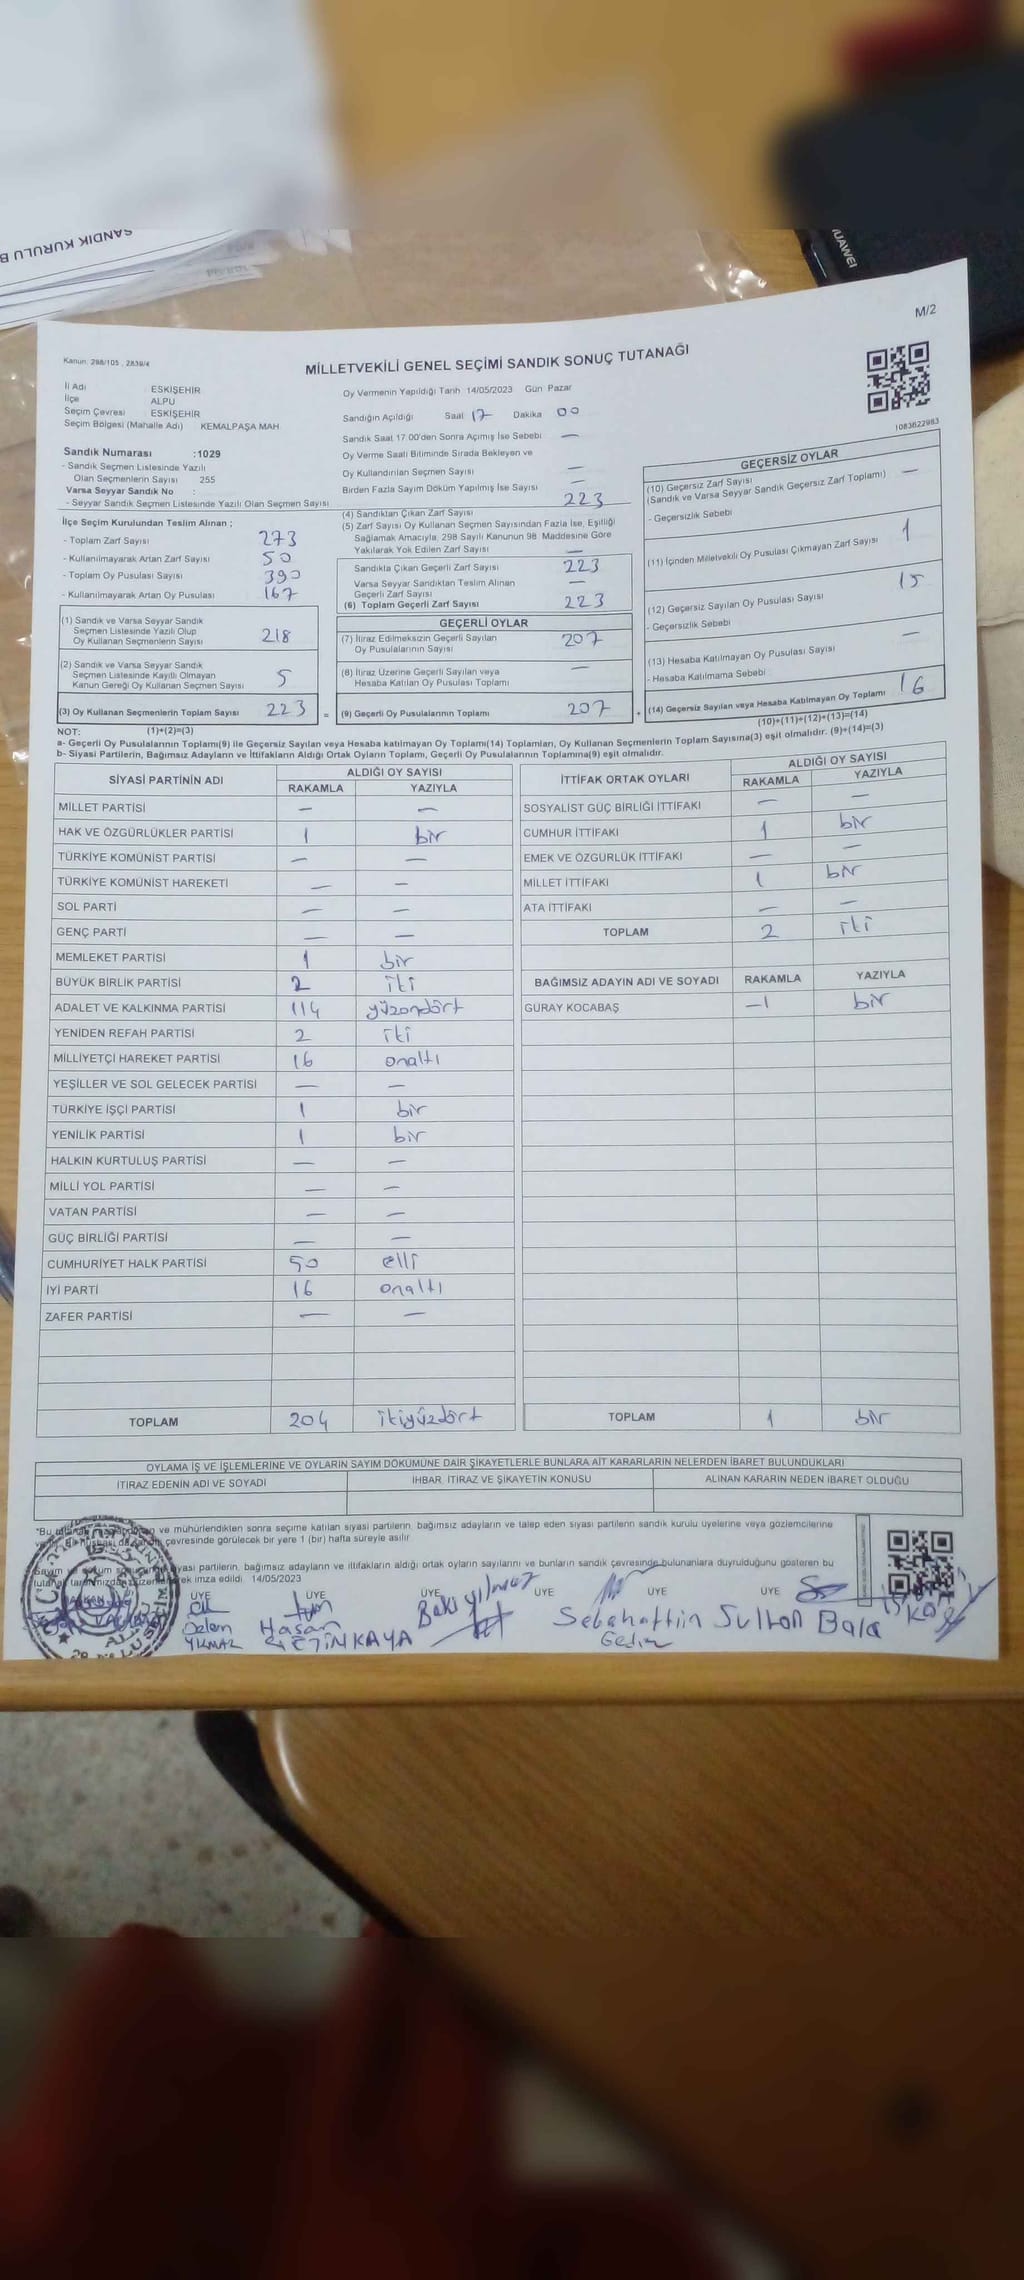 SANDIK KURULU B
HUAWEI
M/2
Kanun: 298/105 , 2839/4
MİLLETVEKİLİ GENEL SEÇİMİ SANDIK SONUÇ TUTANAĞI
İl Adı ESKİŞEHİR
İlçe ALPU
Seçim Çevresi ESKİŞEHİR
Seçim Bölgesi (Mahalle Adı) KEMALPAŞA MAH
Sandık Numarası :1029
- Sandık Seçmen Listesinde Yazılı
Olan Seçmenlerin Sayısı 255
Varsa Seyyar Sandık No :
- Seyyar Sandık Seçmen Listesinde Yazılı Olan Seçmen Sayısı
İlçe Seçim Kurulundan Teslim Alınan ;
- Toplam Zarf Sayısı 273
- Kullanılmayarak Artan Zarf Sayısı 50
- Toplam Oy Pusulası Sayısı 390
- Kullanılmayarak Artan Oy Pusulası 167
(1) Sandık ve Varsa Seyyar Sandık
Seçmen Listesinde Yazılı Olup
Oy Kullanan Seçmenlerin Sayısı 218
(2) Sandık ve Varsa Seyyar Sandık
Seçmen Listesinde Kayıtlı Olmayan
Kanun Gereği Oy Kullanan Seçmen Sayısı 5
(3) Oy Kullanan Seçmenlerin Toplam Sayısı 223 =
Oy Vermenin Yapıldığı Tarih 14/05/2023 Gün Pazar
Sandığın Açıldığı Saat 17 Dakika 00
Sandık Saat 17.00'den Sonra Açılmış İse Sebebi —
Oy Verme Saati Bitiminde Sırada Bekleyen ve
Oy Kullandırılan Seçmen Sayısı —
Birden Fazla Sayım Döküm Yapılmış İse Sayısı —
(4) Sandıktan Çıkan Zarf Sayısı 223
(5) Zarf Sayısı Oy Kullanan Seçmen Sayısından Fazla İse, Eşitliği
Sağlamak Amacıyla, 298 Sayılı Kanunun 98. Maddesine Göre
Yakılarak Yok Edilen Zarf Sayısı —
Sandıkta Çıkan Geçerli Zarf Sayısı 223
Varsa Seyyar Sandıktan Teslim Alınan
Geçerli Zarf Sayısı —
(6) Toplam Geçerli Zarf Sayısı 223
GEÇERLİ OYLAR
(7) İtiraz Edilmeksizin Geçerli Sayılan
Oy Pusulalarının Sayısı 207
(8) İtiraz Üzerine Geçerli Sayılan veya
Hesaba Katılan Oy Pusulası Toplamı —
(9) Geçerli Oy Pusulalarının Toplamı 207 +
1083622983
GEÇERSİZ OYLAR
(10) Geçersiz Zarf Sayısı
(Sandık ve Varsa Seyyar Sandık Geçersiz Zarf Toplamı) —
- Geçersizlik Sebebi
(11) İçinden Milletvekili Oy Pusulası Çıkmayan Zarf Sayısı 1
(12) Geçersiz Sayılan Oy Pusulası Sayısı 15
- Geçersizlik Sebebi
(13) Hesaba Katılmayan Oy Pusulası Sayısı —
- Hesaba Katılmama Sebebi
(14) Geçersiz Sayılan veya Hesaba Katılmayan Oy Toplamı 16
NOT: (1)+(2)=(3) (10)+(11)+(12)+(13)=(14)
a- Geçerli Oy Pusulalarının Toplamı(9) ile Geçersiz Sayılan veya Hesaba katılmayan Oy Toplamı(14) Toplamları, Oy Kullanan Seçmenlerin Toplam Sayısına(3) eşit olmalıdır. (9)+(14)=(3)
b- Siyasi Partilerin, Bağımsız Adayların ve İttifakların Aldığı Ortak Oyların Toplamı, Geçerli Oy Pusulalarının Toplamına(9) eşit olmalıdır.
SİYASİ PARTİNİN ADI ALDIĞI OY SAYISI
RAKAMLA YAZIYLA
MİLLET PARTİSİ — —
HAK VE ÖZGÜRLÜKLER PARTİSİ 1 bir
TÜRKİYE KOMÜNİST PARTİSİ — —
TÜRKİYE KOMÜNİST HAREKETİ — —
SOL PARTİ — —
GENÇ PARTİ — —
MEMLEKET PARTİSİ 1 bir
BÜYÜK BİRLİK PARTİSİ 2 iki
ADALET VE KALKINMA PARTİSİ 114 yüzondört
YENİDEN REFAH PARTİSİ 2 iki
MİLLİYETÇİ HAREKET PARTİSİ 16 onaltı
YEŞİLLER VE SOL GELECEK PARTİSİ — —
TÜRKİYE İŞÇİ PARTİSİ 1 bir
YENİLİK PARTİSİ 1 bir
HALKIN KURTULUŞ PARTİSİ — —
MİLLİ YOL PARTİSİ — —
VATAN PARTİSİ — —
GÜÇ BİRLİĞİ PARTİSİ — —
CUMHURİYET HALK PARTİSİ 50 elli
İYİ PARTİ 16 onaltı
ZAFER PARTİSİ — —
TOPLAM 204 ikiyüzdört
İTTİFAK ORTAK OYLARI ALDIĞI OY SAYISI
RAKAMLA YAZIYLA
SOSYALİST GÜÇ BİRLİĞİ İTTİFAKI — —
CUMHUR İTTİFAKI 1 bir
EMEK VE ÖZGÜRLÜK İTTİFAKI — —
MİLLET İTTİFAKI 1 bir
ATA İTTİFAKI — —
TOPLAM 2 iki
BAĞIMSIZ ADAYIN ADI VE SOYADI RAKAMLA YAZIYLA
GÜRAY KOCABAŞ —1 bir
TOPLAM 1 bir
OYLAMA İŞ VE İŞLEMLERİNE VE OYLARIN SAYIM DÖKÜMÜNE DAİR ŞİKAYETLERLE BUNLARA AİT KARARLARIN NELERDEN İBARET BULUNDUKLARI
İTİRAZ EDENİN ADI VE SOYADI İHBAR, İTİRAZ VE ŞİKAYETİN KONUSU ALINAN KARARIN NEDEN İBARET OLDUĞU
"Bu ve mühürlendikten sonra seçime katılan siyasi partilerin, bağımsız adayların ve talep eden siyasi partilerin sandık kurulu üyelerine veya gözlemcilerine
çevresinde görülecek bir yere 1 (bir) hafta süreyle asılır.
siyasi partilerin, bağımsız adayların ve ittifakların aldığı ortak oyların sayılarını ve bunların sandık çevresinde bulunanlara duyurulduğunu gösteren bu
imza edildi. 14/05/2023
ÜYE ÜYE ÜYE ÜYE ÜYE ÜYE
Hasan ÇETİNKAYA
Baki yılmaz
Sebahattin
Sultan Bala
YILMAZ